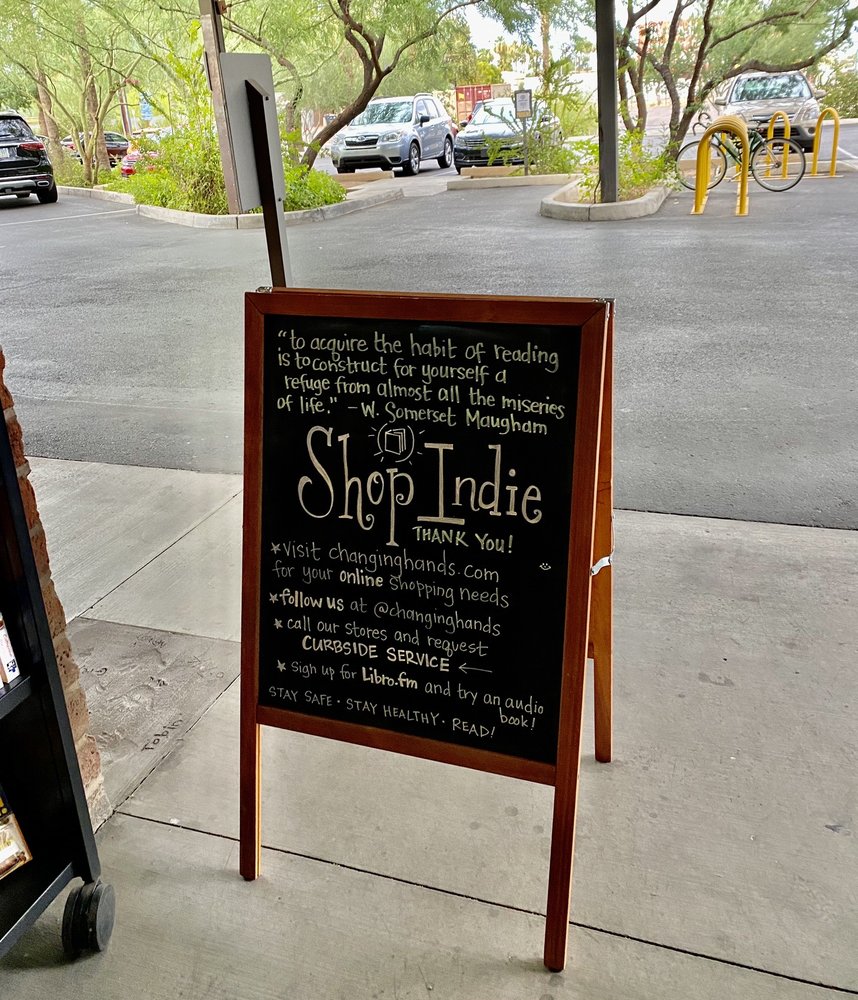 "to acquire the habit of reading
is to construct for yourself a
refuge from almost all the miseries
of life." -W. Somerset Maugham
Shop Indie
THANK YOU!
*visit changinghands.com
for your online shopping needs
*follow us at @changinghands
*call our stores and request
CURBSIDE SERVICE ←
*sign up for Libro.fm and try an audio
book!
STAY SAFE · STAY HEALTHY · READ!
Tobin